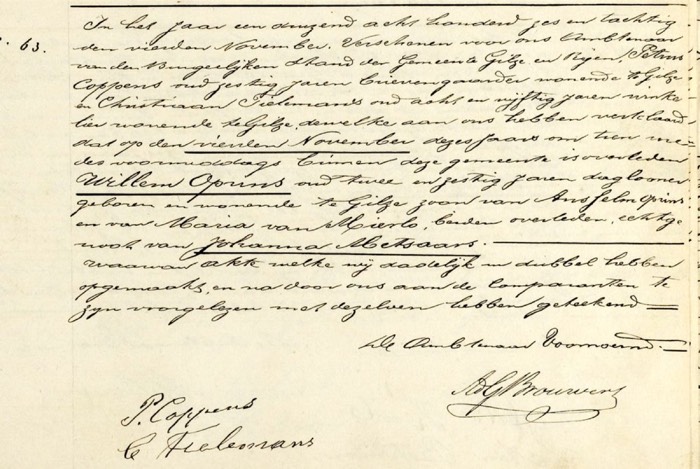 63.
In het jaar een duizend acht honderd zes en tachtig
den vierden November, Verschenen voor ons Ambtenaar
van den Burgerlijken Stand der Gemeente Gilze en Rijen, Petrus
Coppens oud zestig jaren brievengaarder wonende te Gilze
en Christiaan Tielemans oud acht en vijftig jaren winke
lier wonende te Gilze, dewelke aan ons hebben verklaard
dat op den vierden November dezes jaars om tien ure
des voormiddags binnen deze gemeente is overleden
Willem Oprins oud twee en zestig jaren daglooner
geboren en wonende te Gilze zoon van Anselm Oprins
en van Maria van Mierlo, beiden overleden, echtge
noot van Johanna Metsaars.
Waarvan akte welke wij dadelijk in dubbel hebben
opgemaakt, en na voor ons aan de Comparanten te
zijn voorgelezen met dezelven hebben geteekend
De Ambtenaar Voornoemd.
Brouwers
P. Coppens
C Tielemans